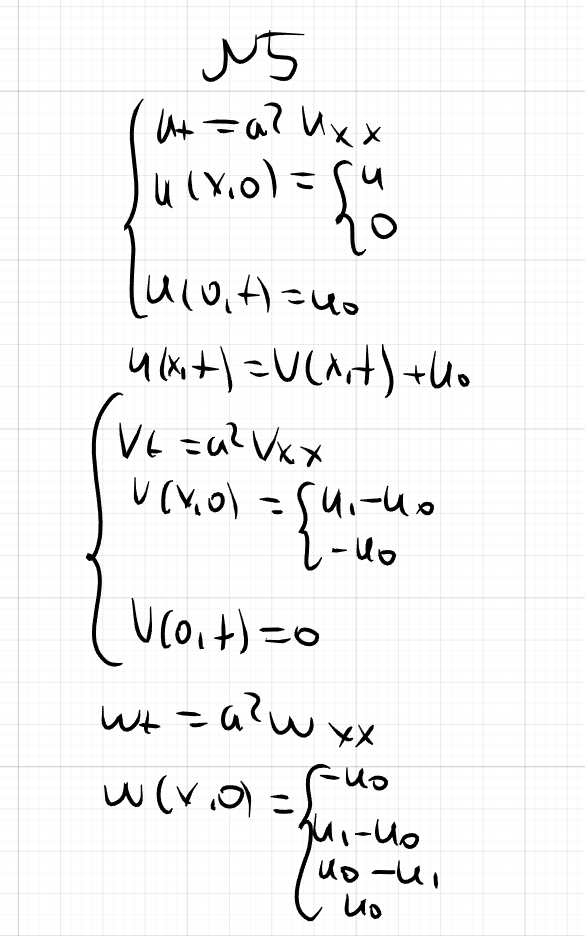 №5
u_t = a² u_xx
u(x,0) = { u
0
u(0,t) = u₀
u(x,t) = V(x,t) + u₀
V_t = a² V_xx
V(x,0) = { u₁ - u₀
-u₀
V(0,t) = 0
w_t = a² w_xx
w(x,0) = { -u₀
u₁ - u₀
u₀ - u₁
u₀